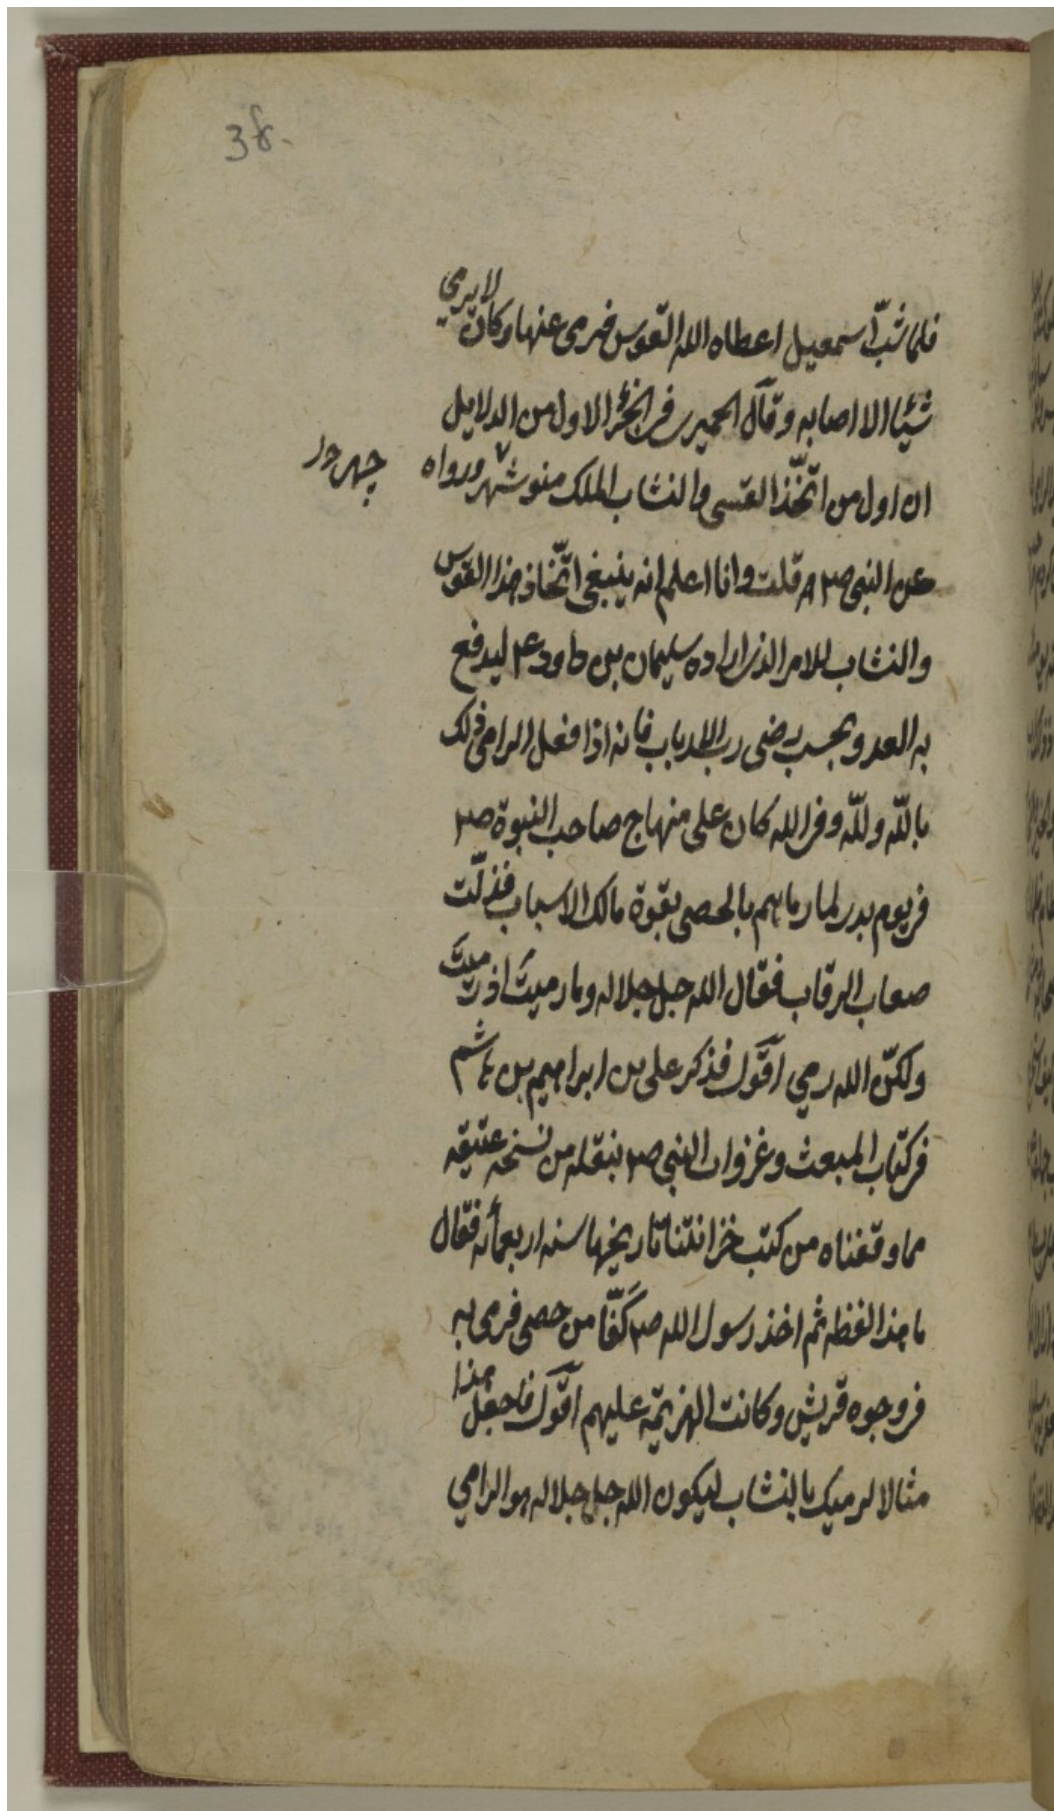 38.
فلما شبّ اسمعيل اعطاه الله القوس فرمى عنها وكان لا يرمي
شيئا الا اصابه وقال الحميرى فى الجزء الاول من الدلايل
ان اول من اتّخذ القسى والنشاب الملك منوشهر ورواه
چهر خ‌ل
عن النبى ص۲ قلت وانا اعلم انه ينبغى اتّخاذ هذا القوس
والنشاب للامر الذى اراده سليمان بن داود ع۲ ليدفع
به العدو بحسب رضى رب الارباب فانه اذا فعل الرامى ذلك
بالله ولله وفى الله كان على منهاج صاحب النبوة ص۲
فى يوم بدر لما رماهم بالحصى بقوة مالك الاسباب فذلّت
صعاب الرقاب فقال الله جل جلاله وما رميت اذ رميت
ولكنّ الله رمي اقول فذكر على بن ابراهيم بن هاشم
فى كتاب المبعث وغزوات النبى ص۲ بنقله من نسخه عتيقه
مما وقفناه من كتب خزانتنا تاريخها سنه اربعمأئه فقال
ما هذا لفظه ثم اخذ رسول الله ص۲ كفّا من حصى فرمى به
فى وجوه قريش وكانت الهزيمة عليهم اقول فاجعل هذا
مثالا لرميك بالنشاب ليكون الله جل جلاله هو الرامي